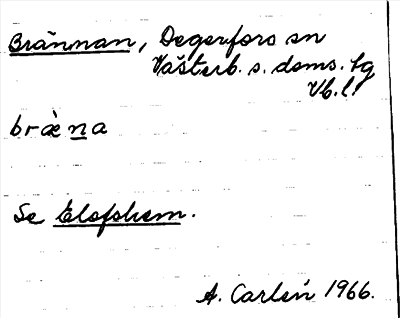 Brännan, Degerfors sn
Västerb. s. doms. tg
Vb. l.
bræ̀na
Se Elofshem.
A. Carlén 1966.